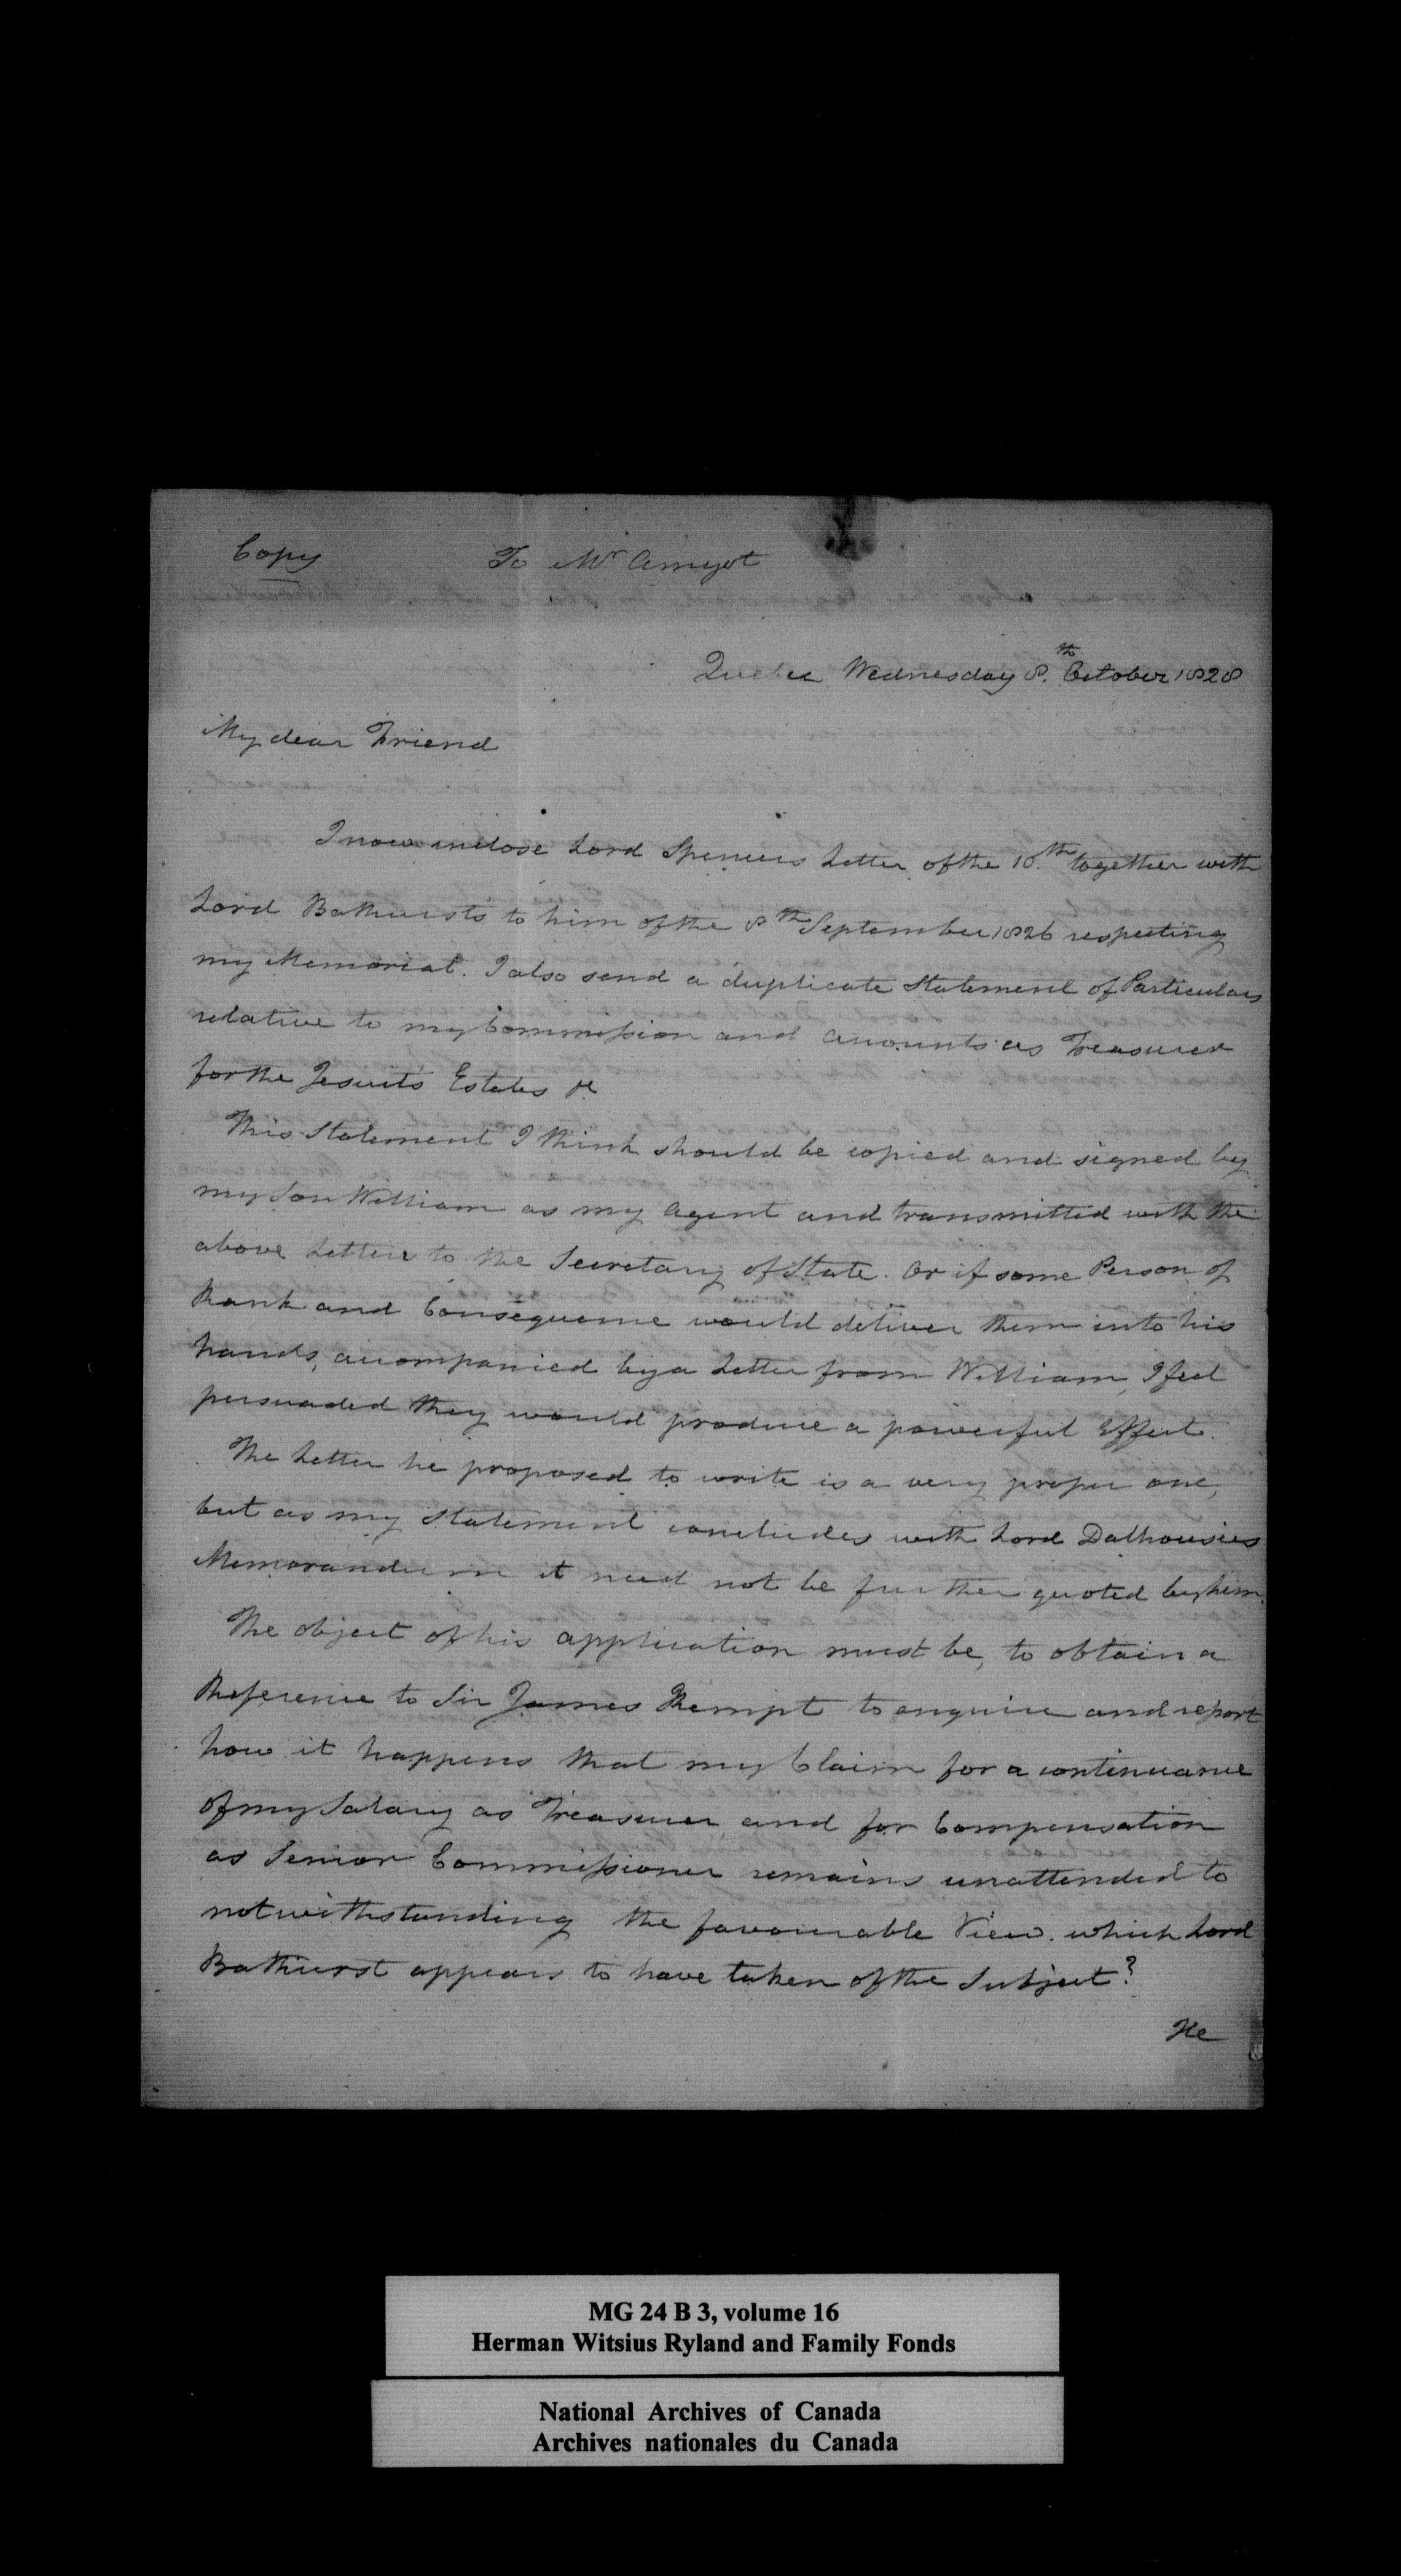 Copy To Mr Amyot
Quebec Wednesday 8.th October 1828
My dear Friend
I now inclose Lord Spencers Letter of the 10.th together with
Lord Bathursts to him of the 8th September 1826 respecting
my Memorial. I also send a duplicate Statement of Particulars
relative to my Commission and Accounts as Treasurer
for the Jesuits Estates &c
This Statement I think should be copied and signed by
my Son William as my Agent and transmitted with the
above Letters to the Secretary of State. Or if some Person of
Rank and Consequence would deliver them into his
hands, accompanied by a Letter from William, I feel
persuaded they would produce a powerful Effect.
The Letter he proposed to write is a very proper one,
but as my Statement concludes with Lord Dalhousies
Memorandum it need not be further quoted by him.
The object of his application must be, to obtain a
Reference to Sir James Kempt to enquire and report
how it happens that my Claim for a continuance
of my Salary as Treasurer and for Compensation
as Senior Commissioner remains unattended to
notwithstanding the favourable View which Lord
Bathurst appears to have taken of the Subject?
He
MG 24 B 3, volume 16
Herman Witsius Ryland and Family Fonds
National Archives of Canada
Archives nationales du Canada